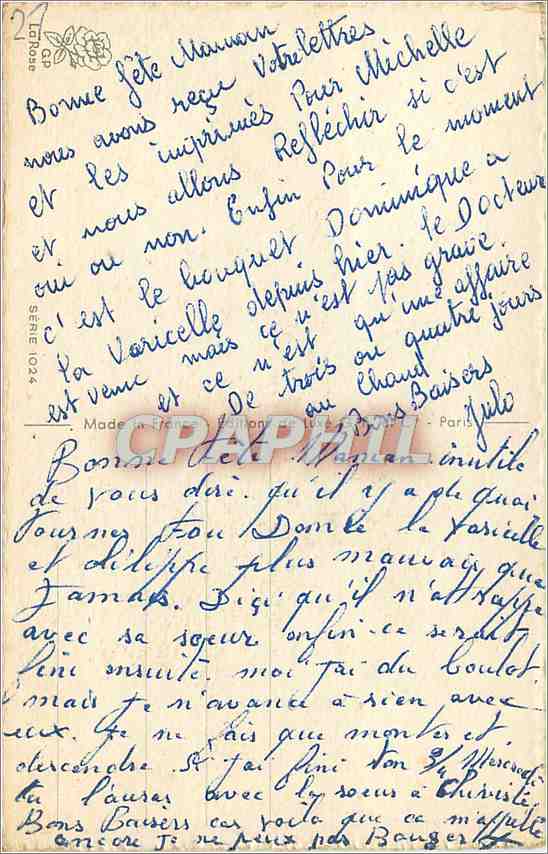 21
GP
La Rose
Bonne fête Maman
nous avons reçu Votre lettres
et les imprimés Pour Michelle
et nous allons Refléchir si c'est
oui ou non. Enfin Pour le moment
c'est le bouquet Dominique a
la Varicelle depuis hier. le Docteur
est venu mais ce n'est pas grave.
et ce n'est qu'une affaire
De trois ou quatre jours
au chaud
Bons Baisers
Julo
SÉRIE 1024
Made in France - Editions de Luxe - Paris
CPAPHIL
Bonne Fête Maman inutile
de vous dire qu'il y a de quoi
Tourner Fou Domi la varicelle
et filippe plus mauvais que
Jamais. Dici qu'il n'attrappe
avec sa sœur enfin ce serait
fini ensuite. moi j'ai du boulot
mais je n'avance à rien avec
eux. je ne fais que monter et
descendre. j'ai fini ton 3/4 Mercredi
tu l'auras avec la soeur à
Bons Baisers car voilà que ca m'appelle
ancore Je ne peux pas Bouger